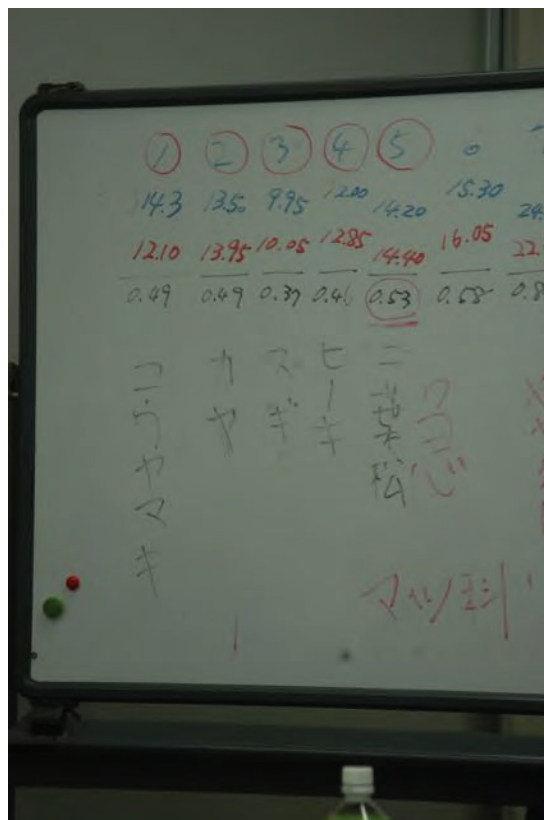 ① ② ③ ④ ⑤ 6
14.3 13.50 9.95 12.00 14.20 15.30 24.
12.10 13.95 10.05 12.85 14.40 16.05 22.
0.49 0.49 0.37 0.46 0.53 0.58 0.8
コウヤマキ
カヤ
スギ
ヒノキ
二葉松
マツ